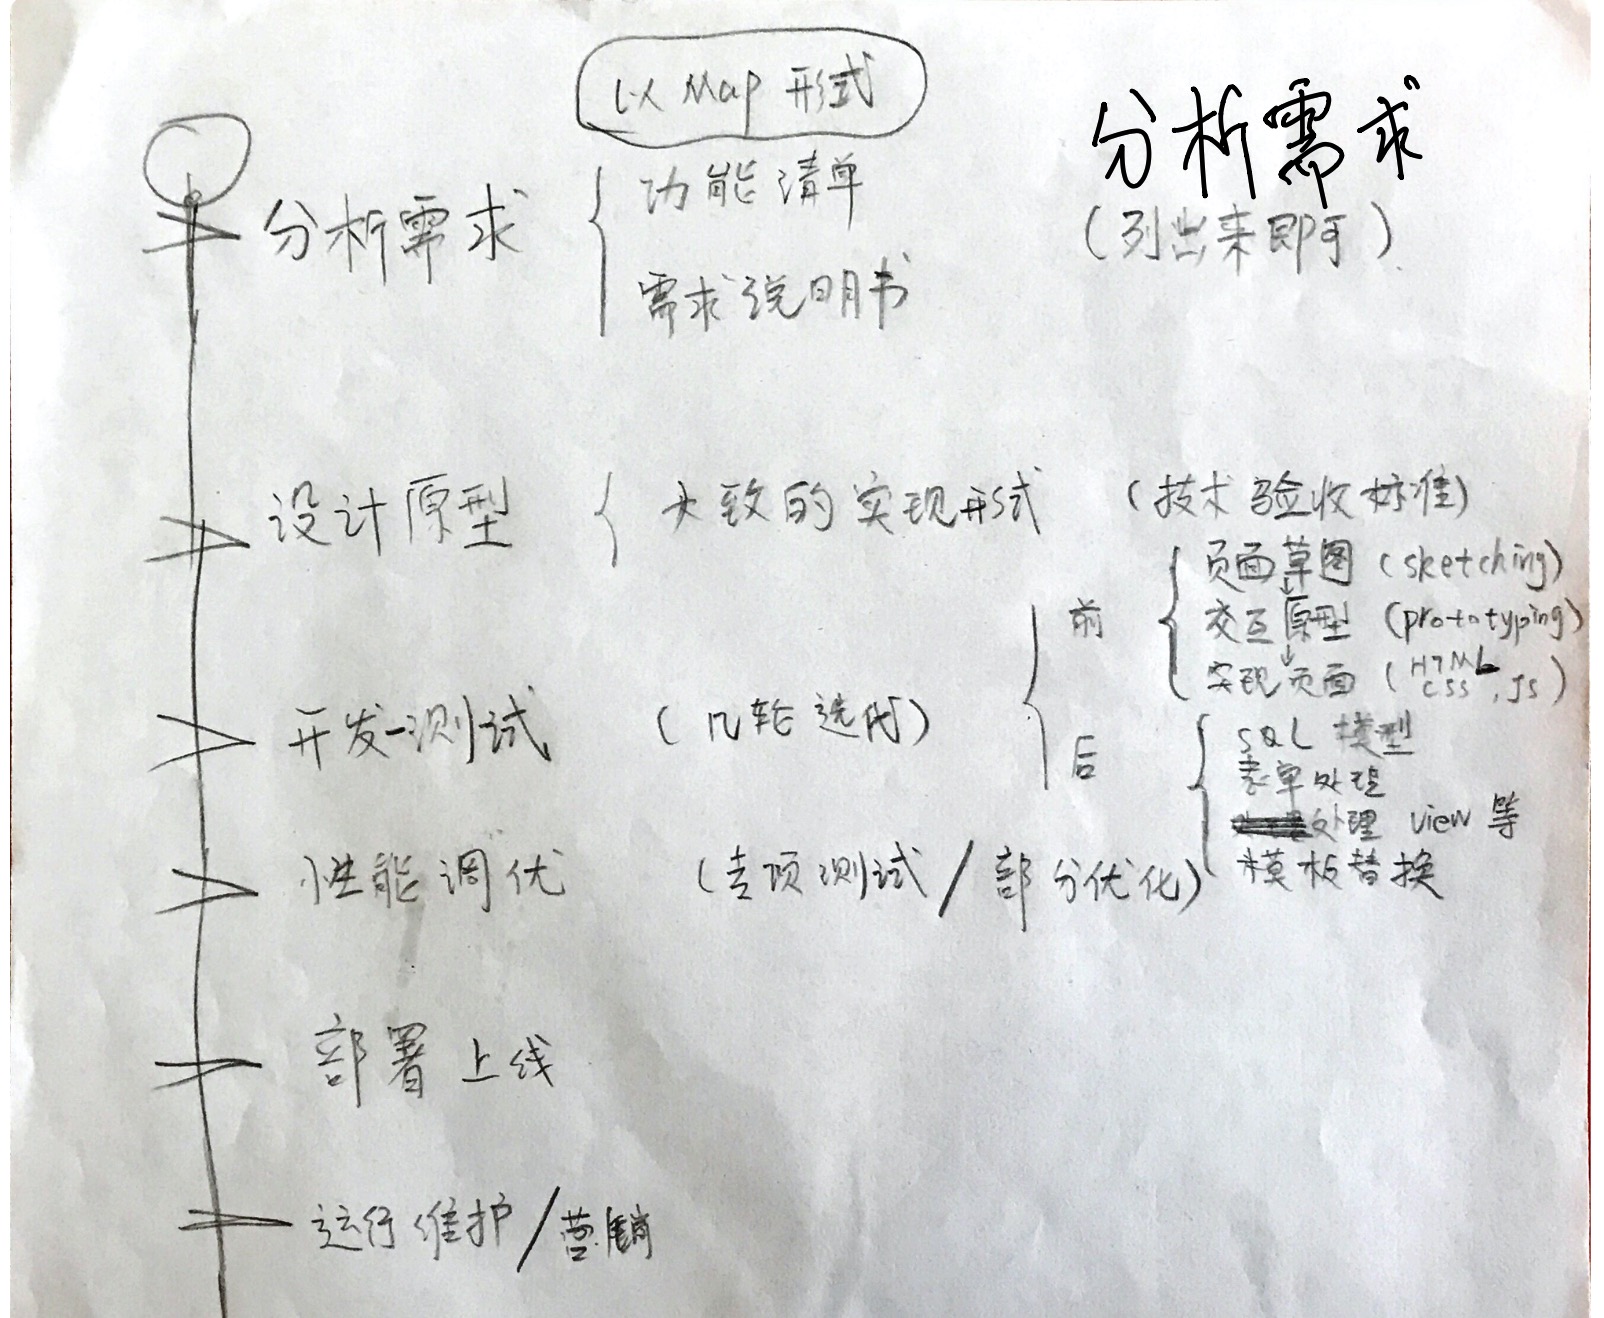 以 Map 形式
分析需求
分析需求 { 功能清单
(列出来即可)
需求说明书
设计原型 { 大致的实现形式 (技术验收标准)
前 { 页面草图 (sketching)
交互原型 (prototyping)
实现页面 (HTML CSS, JS)
开发-测试 (几轮迭代)
后 { SQL 模型
表单处理
处理 view 等
模板替换
性能调优 (专项测试/部分优化)
部署上线
运行维护/营销